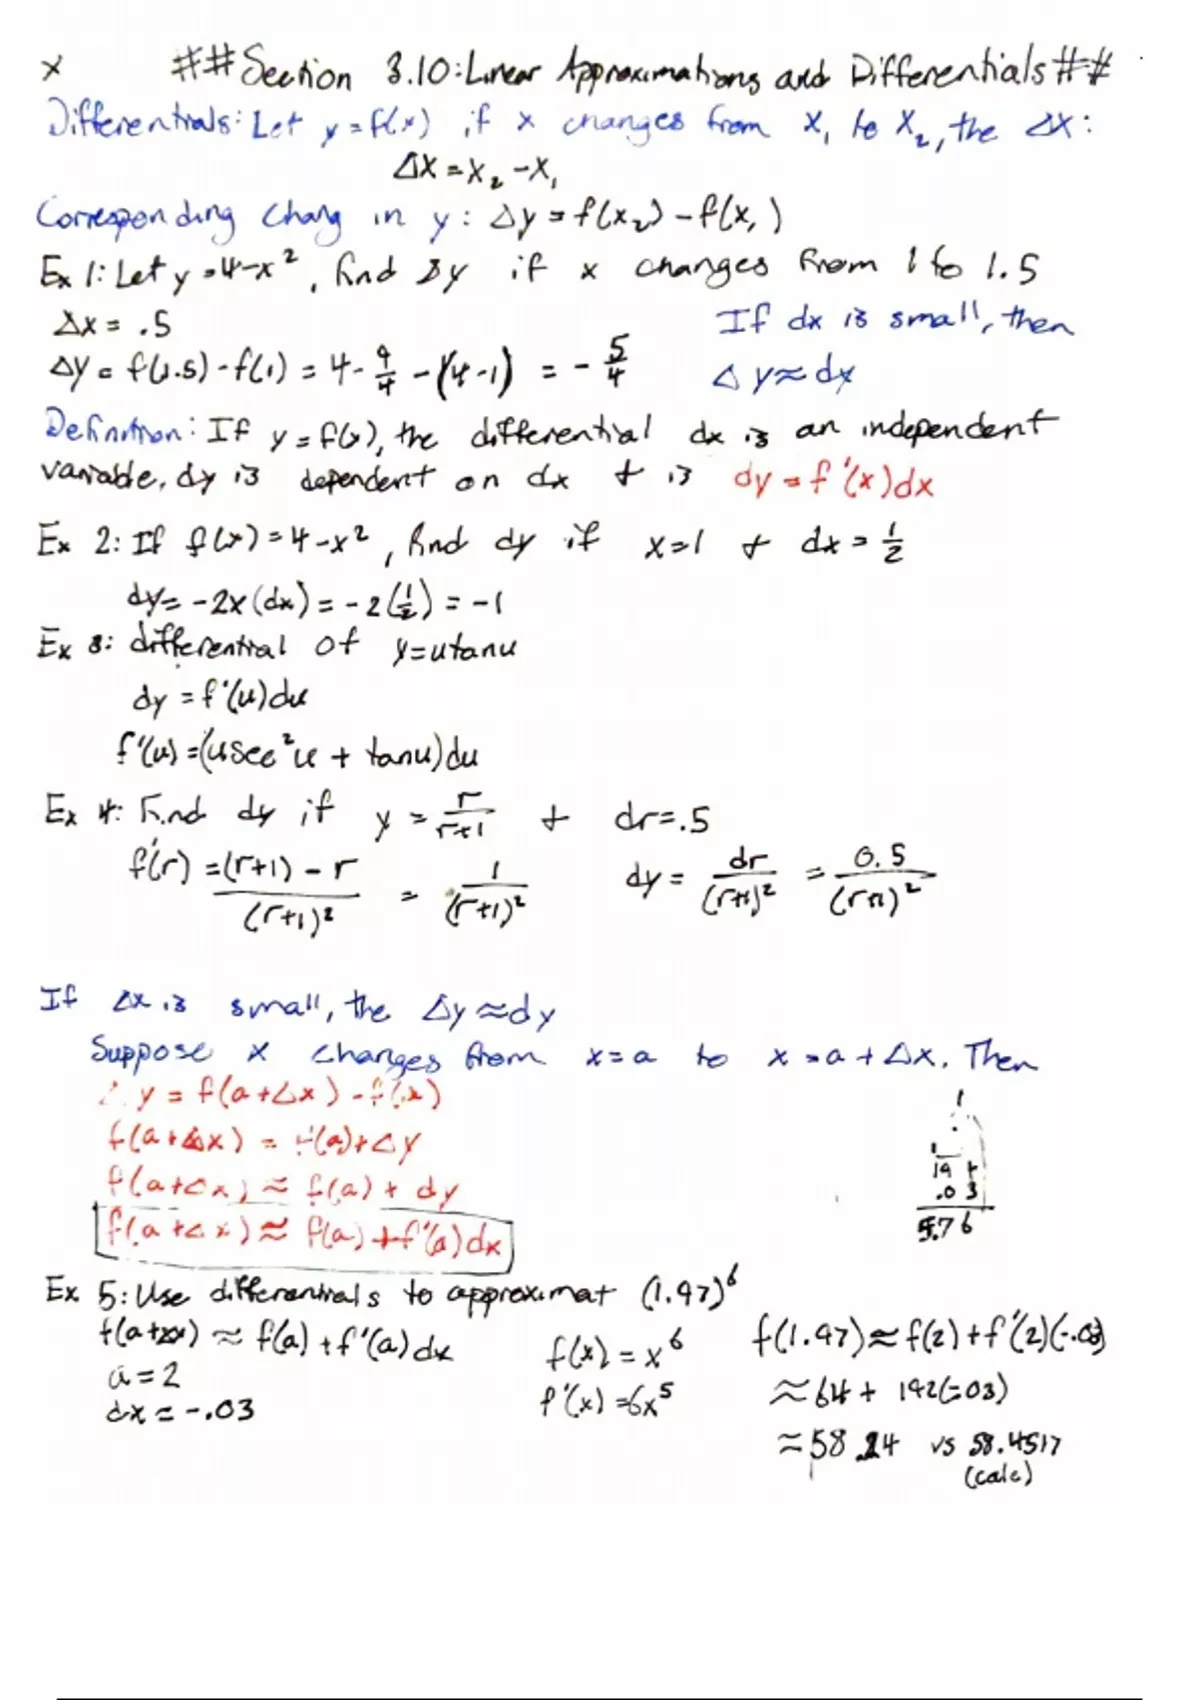 x ##Section 3.10: Linear Approximations and Differentials##
Differentials: Let y = f(x) if x changes from x₁ to x₂, the Δx:
Δx = x₂ - x₁
Corresponding Chang in y: Δy = f(x₂) - f(x₁)
Ex 1: Let y = 4-x², find Δy if x changes from 1 to 1.5
Δx = .5
If dx is small, then
Δy = f(1.5) - f(1) = 4 - 9/4 - (4-1) = -5/4
Δy ≈ dy
Definition: If y = f(x), the differential dx is an independent
variable, dy is dependent on dx + is dy = f'(x)dx
Ex 2: If f(x) = 4-x², find dy if x=1 + dx = 1/2
dy = -2x(dx) = -2(1/2) = -1
Ex 3: differential of y=utanu
dy = f'(u)du
f'(u) = (usec²u + tanu)du
Ex 4: Find dy if y = r/(r+1) + dr=.5
f'(r) = ((r+1) - r)/(r+1)² = 1/(r+1)²
dy = dr/(r+1)² = 0.5/(r+1)²
If Δx is small, the Δy ≈ dy
Suppose x changes from x = a to x = a + Δx. Then
y = f(a+Δx) - f(x)
f(a+Δx) = f(a)+Δy
f(a+Δx) ≈ f(a) + dy
f(a+Δx) ≈ f(a) + f'(a)dx
.03
5.76
Ex 5: Use differentials to approximat (1.97)⁶
f(a+Δx) ≈ f(a) + f'(a)dx
a = 2
dx = -.03
f(x) = x⁶
f'(x) = 6x⁵
f(1.97) ≈ f(2) + f'(2)(-.03)
≈ 64 + 192(-.03)
≈ 58.24 vs 58.4517
(calc)